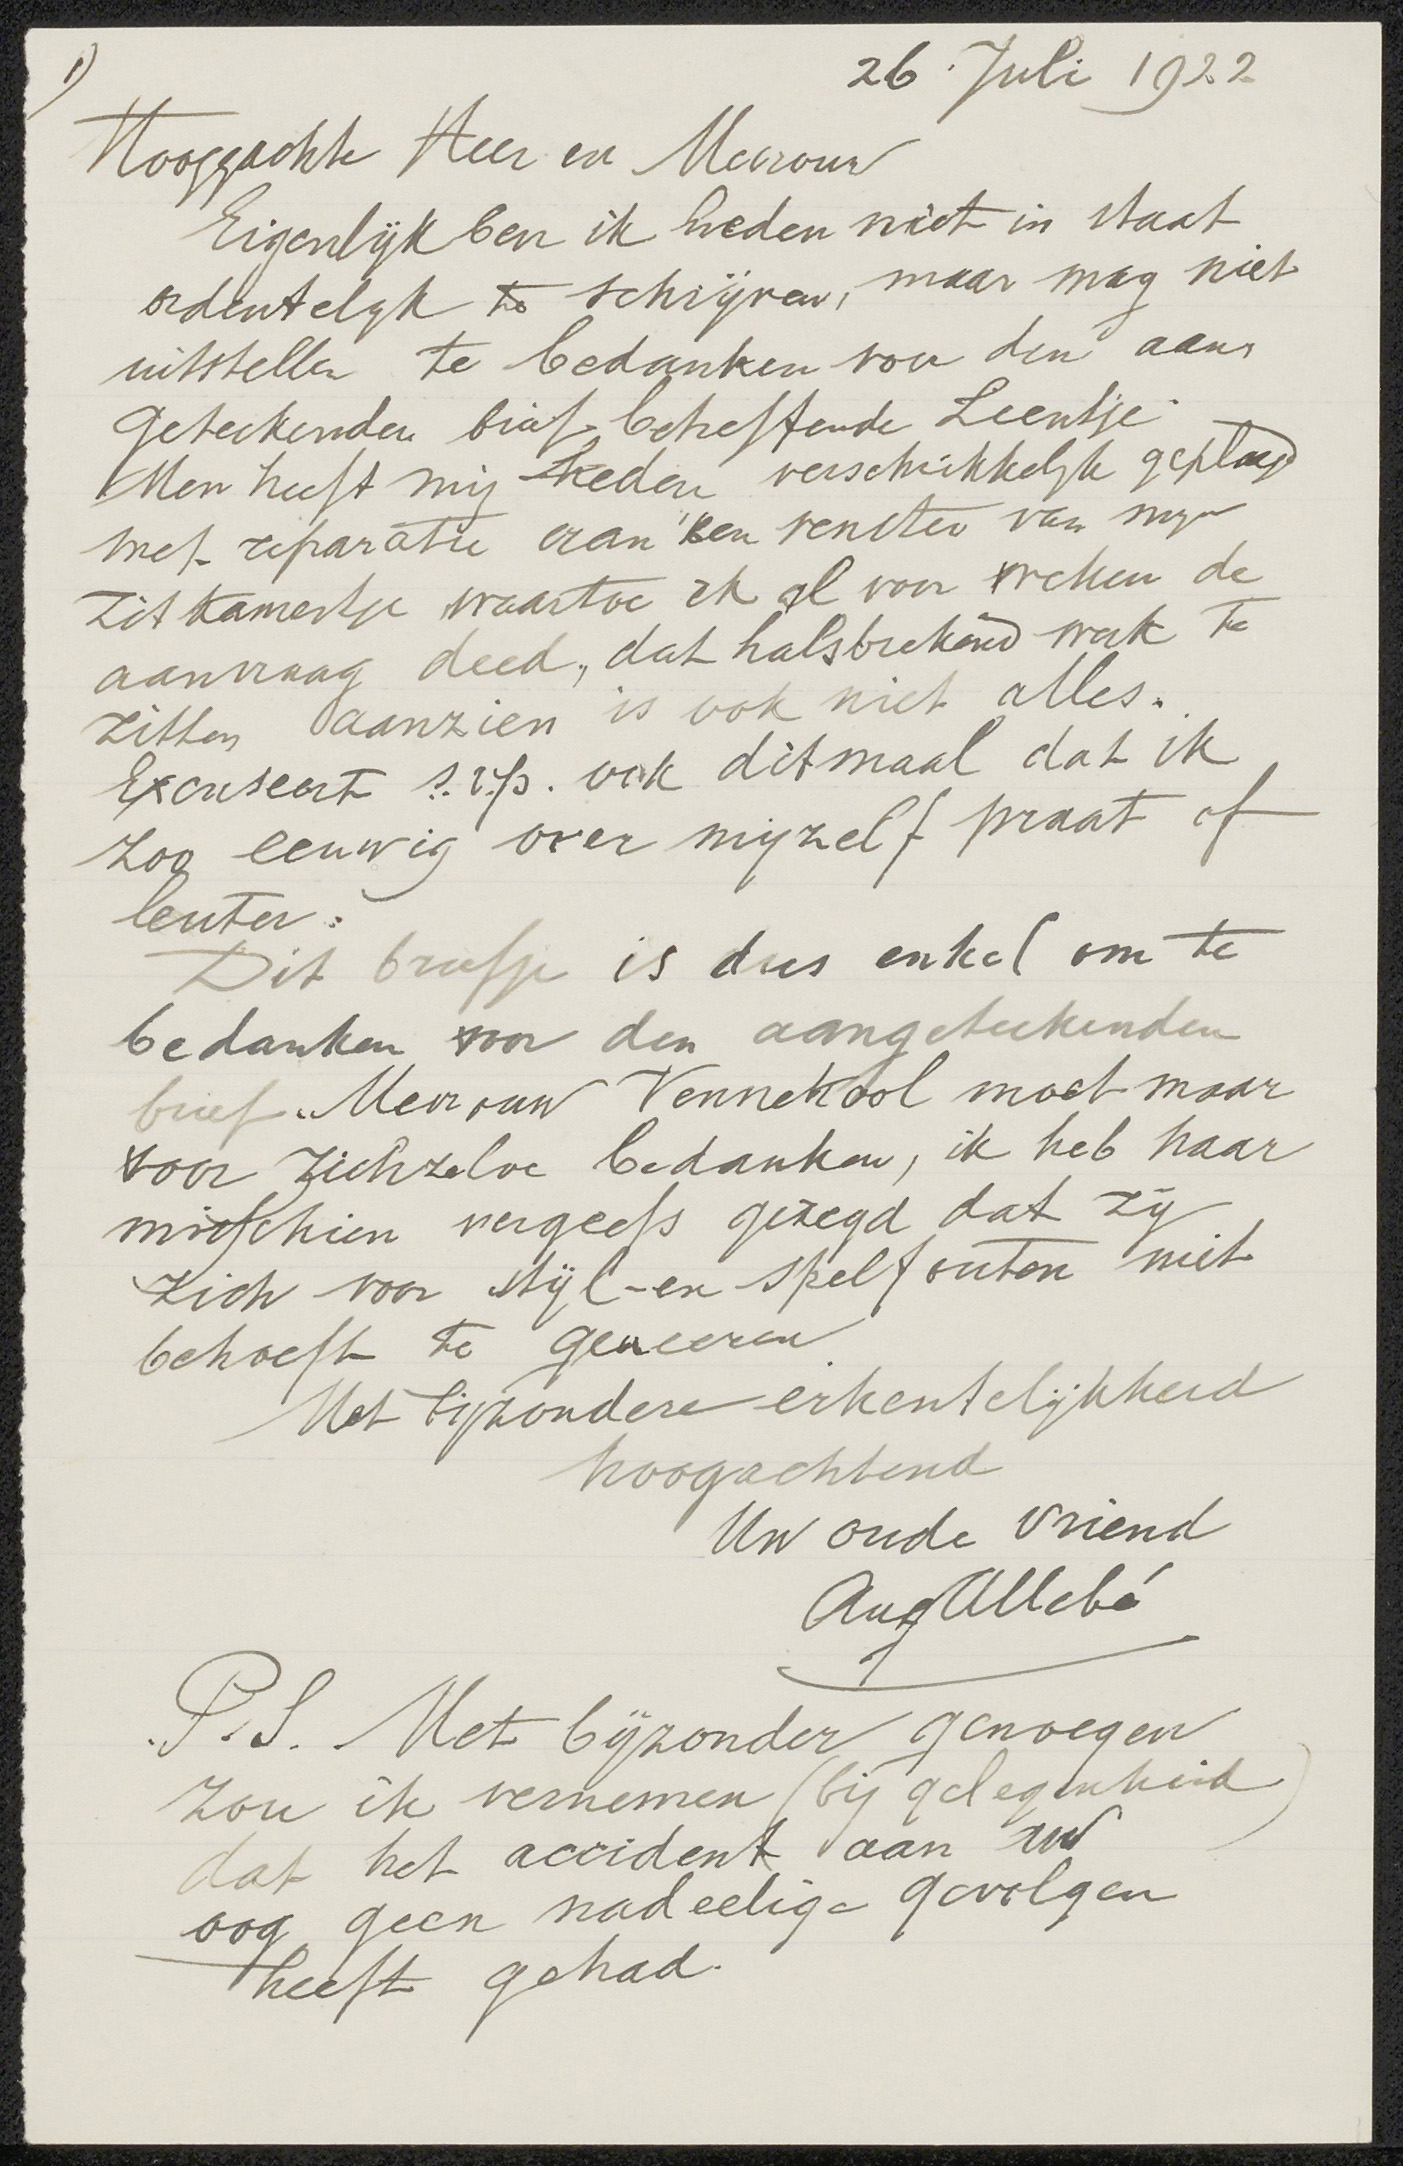 1)
26 Juli 1922
Hooggeachte Heer en Mevrouw
Eigenlijk ben ik heden niet in staat
ordentelyk te schrijven, maar mag niet
uitstellen te bedanken voor den aan-
geteekenden brief betreffende Leentje.
Men heeft mij heden verschrikkelyk geplaagd
met reparatie aan een venster van myn
zitkamertje waartoe ik al voor weken de
aanvraag deed, dat halsbrekend werk te
zitten aanzien is ook niet alles.
Excuseert s.v.p. ook ditmaal dat ik
zoo eeuwig over mijzelf praat of
leuter.
Dit briefje is dus enkel om te
bedanken voor den aangeteekenden
brief. Mevrouw Vennekool moet maar
voor zichzelve bedanken, ik heb haar
misschien vergeefs gezegd dat zij
zich voor stijl-en spelfouten niet
behoeft te geneeren
Met bijzondere erkentelijkheid
hoogachtend
Uw oude vriend
Aug Allebé
P.S. Met bijzonder genoegen
zou ik vernemen (bij gelegenheid)
dat het accident aan uw
oog geen nadeelige gevolgen
heeft gehad.